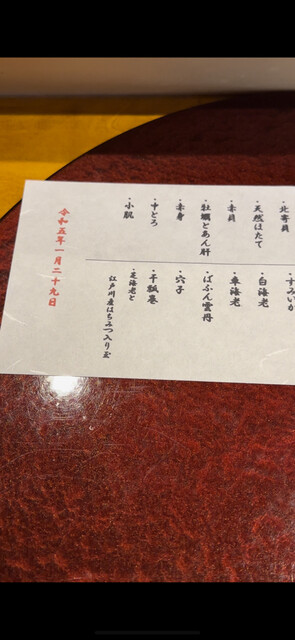 ・北寄貝
・天然ほたて
・赤貝
・牡蠣とあん肝
・赤身
・中とろ
・小肌
・すみいか
・白海老
・車海老
・ばふん雲丹
・穴子
・干瓢巻
・芝海老と
江戸川産はちみつ入り玉
令和五年一月二十九日